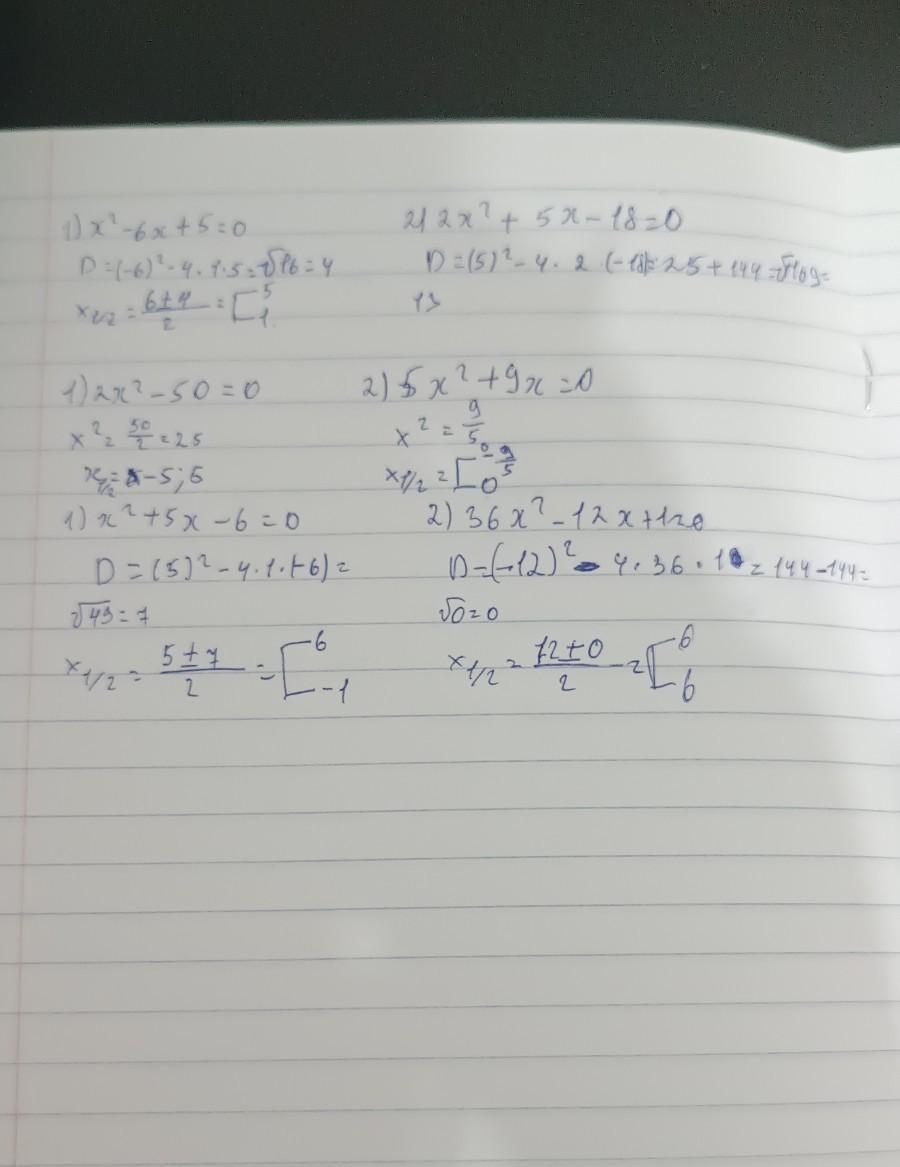 1) x² - 6x + 5 = 0
D = (-6)² - 4 · 1 · 5 = √16 = 4
x₁/₂ = (6 ± 4)/2 = [5 1
2) 2x² + 5x - 18 = 0
D = (5)² - 4 · 2 · (-18) = 25 + 144 = √169 =
13
1) 2x² - 50 = 0
x² = 50/2 = 25
x₁/₂ = -5; 5
2) 5x² + 9x = 0
x² = 9/5
x₁/₂ = [-9/5 0
1) x² + 5x - 6 = 0
D = (5)² - 4 · 1 · (-6) =
√49 = 7
x₁/₂ = (5 ± 7)/2 = [6 -1
2) 36x² - 12x + 1 = 0
D = (-12)² - 4 · 36 · 1 = 144 - 144 =
√0 = 0
x₁/₂ = (12 ± 0)/2 = [6 6